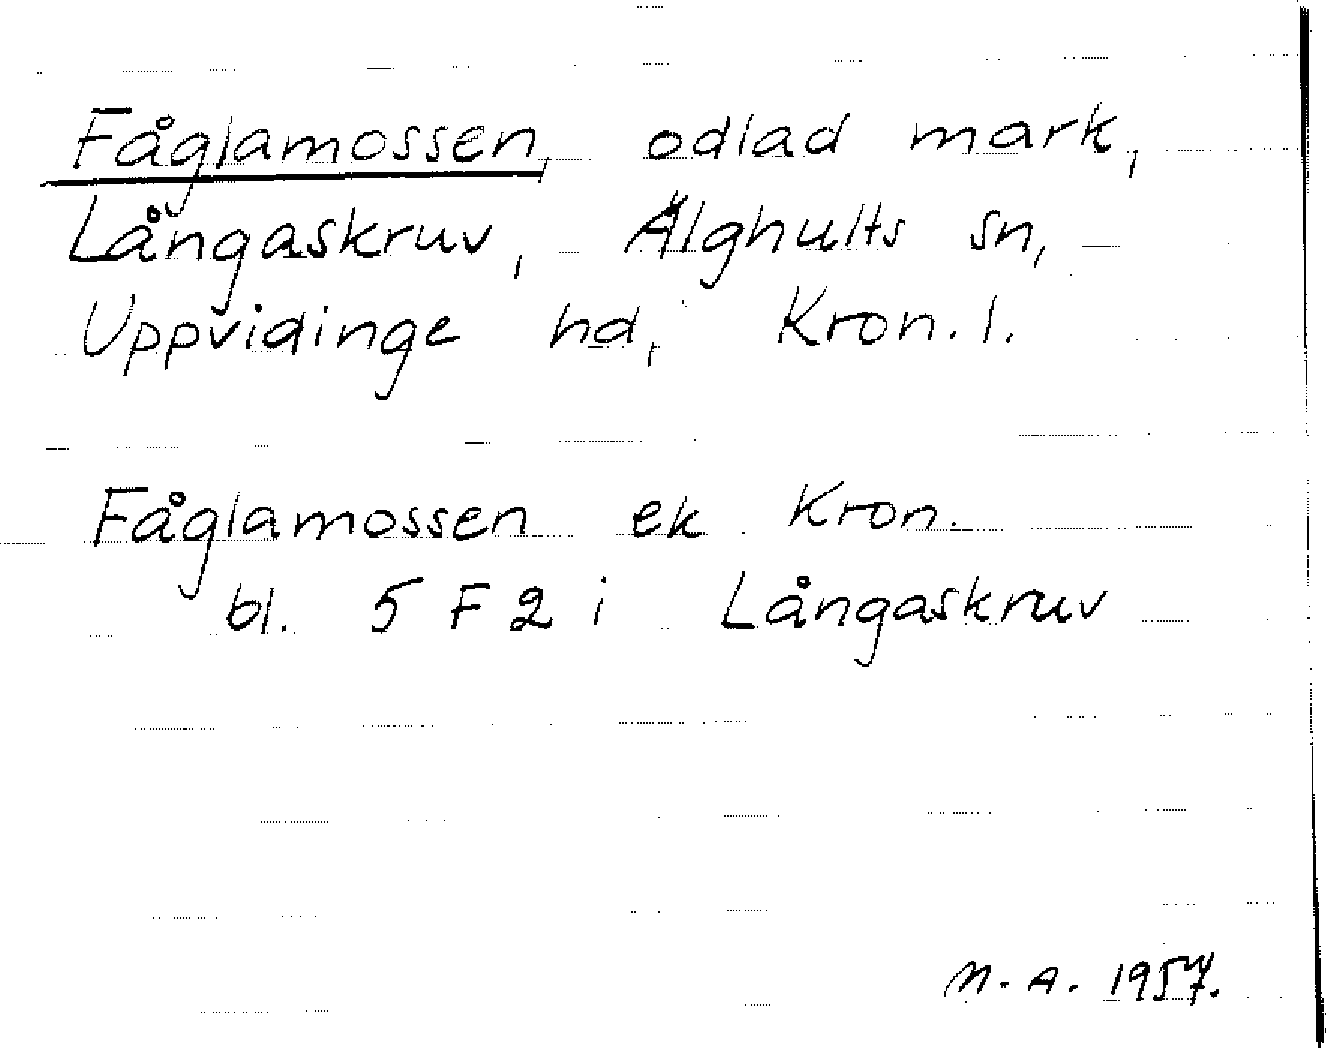 Fåglamossen, odlad mark,
Långaskruv, Älghults sn,
Uppvidinge hd, Kron. l.
Fåglamossen ek Kron.
bl. 5 F 2 i Långaskruv
M. A. 1957.